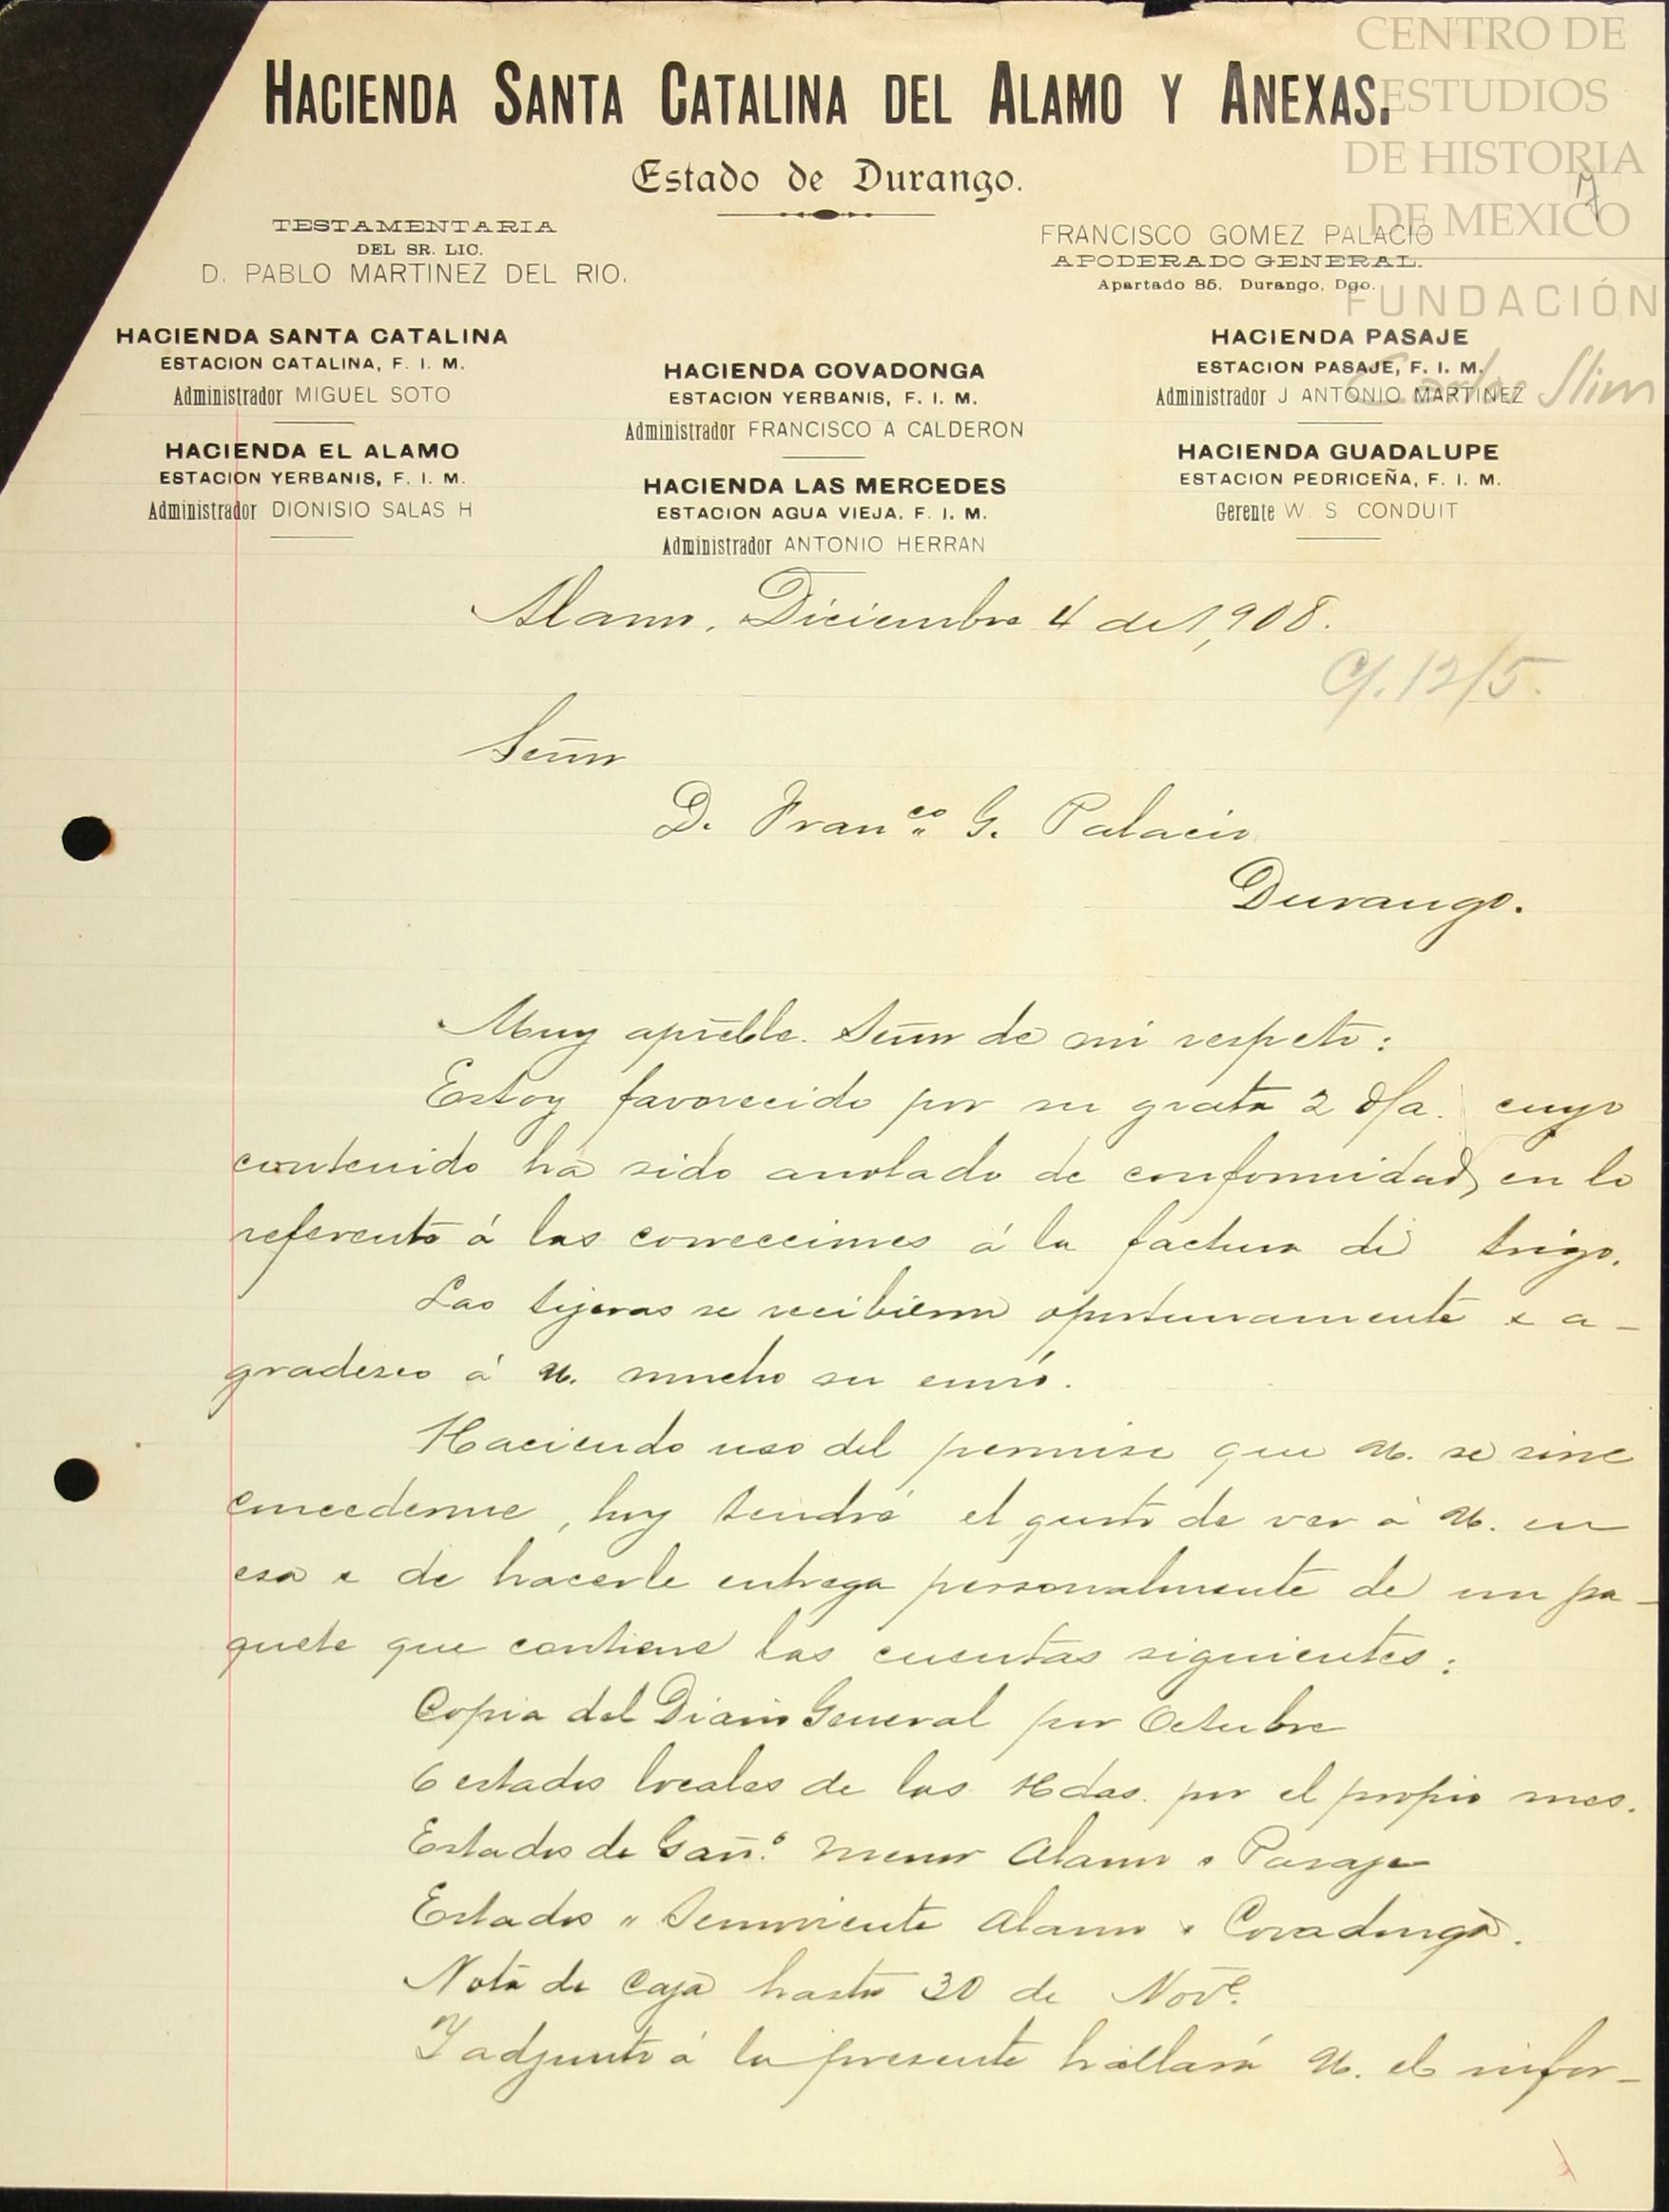 CENTRO DE
ESTUDIOS
DE HISTORIA
DE MEXICO
FUNDACIÓN
Carlos Slim
7
HACIENDA SANTA CATALINA DEL ALAMO Y ANEXAS.
Estado de Durango.
TESTAMENTARIA
DEL SR. LIC.
D. PABLO MARTINEZ DEL RIO.
FRANCISCO GOMEZ PALACIO
APODERADO GENERAL.
Apartado 85, Durango, Dgo.
HACIENDA SANTA CATALINA
ESTACION CATALINA, F. I. M.
Administrador MIGUEL SOTO
HACIENDA EL ALAMO
ESTACION YERBANIS, F. I. M.
Administrador DIONISIO SALAS H
HACIENDA COVADONGA
ESTACION YERBANIS, F. I. M.
Administrador FRANCISCO A CALDERON
HACIENDA LAS MERCEDES
ESTACION AGUA VIEJA. F. I. M.
Administrador ANTONIO HERRAN
HACIENDA PASAJE
ESTACION PASAJE, F. I. M.
Administrador J ANTONIO MARTINEZ
HACIENDA GUADALUPE
ESTACION PEDRICEÑA, F. I. M.
Gerente W. S CONDUIT
Alamo, Diciembre 4 de 1,908.
C/. 12/5.
Señor
D. Franco. G. Palacio
Durango.
Muy apreble. Señor de mi respeto:
Estoy favorecido por su grata 2 d/a. cuyo
contenido ha sido anotado de conformidad, en lo
referente á las correcciones á la factura de trigo.
Las tijeras se recibieron oportunamente y a-
gradesco á U. mucho su envió.
Haciendo uso del permiso que U. se sirve
concederme, hoy tendré el gusto de ver á U. en
esa y de hacerle entrega personalmente de un pa-
quete que contiene las cuentas siguientes:
Copia del Diario General por Octubre
6 estados locales de las Hdas. por el propio mes.
Estados de Gan.o menor Alamo y Pasaje
Estados " Semoviente Alamo y Covadonga.
Nota de Caja hasta 30 de Nove.
Y adjunto á la presente hallará U. el infor-